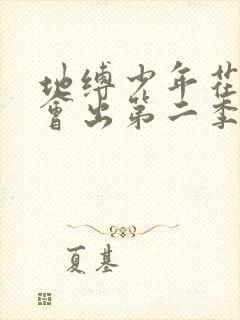 地缚少年花
會出第二季
夏基